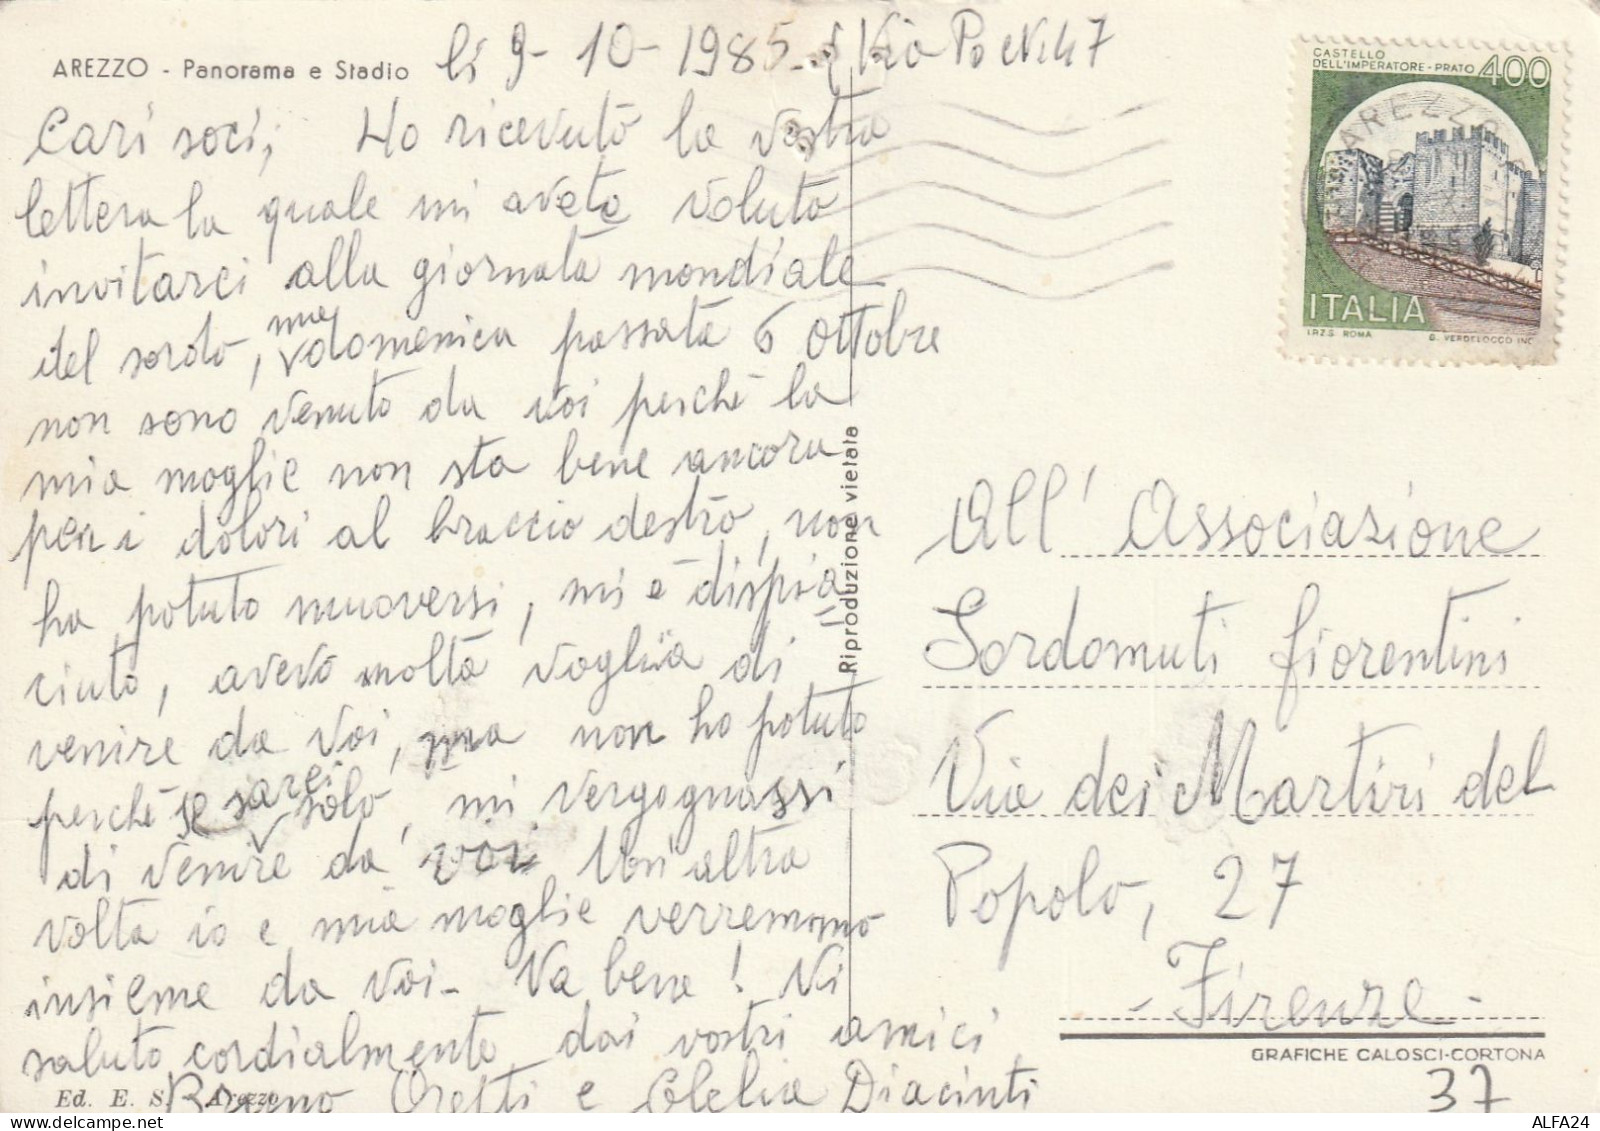 AREZZO - Panorama e Stadio
lì 9-10-1985 Via Po N. 47
Cari soci, Ho ricevuto la vostra
lettera la quale mi avete voluto
invitarci alla giornata mondiale
del sordo, ma domenica passata 6 ottobre
non sono venuto da voi perchè la
mia moglie non sta bene ancora
per i dolori al braccio destro, non
ha potuto muoversi, mi è dispia=
ciuto, avevo molta voglia di
venire da voi, ma non ho potuto
perchè se sarei solo, mi vergognassi
di venire da voi. Un'altra
volta io e mia moglie verremmo
insieme da voi - Va bene! Vi
saluto cordialmente dai vostri amici
Bruno Oretti e Clelia Diacinti
Ed. E. S. Arezzo
Riproduzione vietata
CASTELLO
DELL'IMPERATORE-PRATO 400
AREZZO
ITALIA
I.P.Z.S. ROMA G. VERDELOCCO INC.
All' Associazione
Sordomuti fiorentini
Via dei Martiri del
Popolo, 27
- Firenze -
GRAFICHE CALOSCI-CORTONA
37
ALFA24